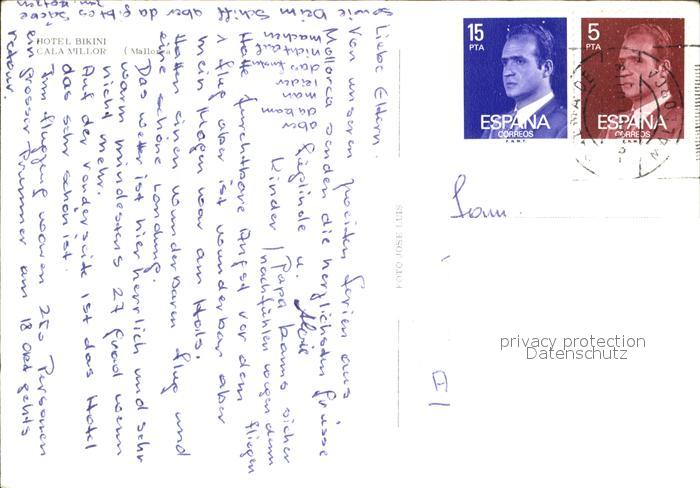 HOTEL BIKINI
CALA MILLOR (Mallorca)
Liebe Eltern.
Von unseren zweiten Ferien aus
Mallorca senden die herzlichsten Grüsse
Sieglinde u. Alois
Kinder
Papa kanns sicher
nachfühlen wegen dem
fliegen
Hatte furchtbare Angst vor dem
1 Flug aber ist wunderbar aber
mein Magen war am Hals.
Hatten einen wunderbaren Flug und
eine schöne Landung.
Das Wetter ist hier herrlich und sehr
warm mindestens 27 Grad wenn
nicht mehr.
Auf der Vorderseite ist das Hotel
das sehr schön ist.
Im Flugzeug waren 250 Personen
ein grosser Brummer am 18 Okt gehts
retour.
aber da
man
leider
das
nicht
machen
sowie beim Schiff
aber da gibt es Säcke
zum
FOTO JOSE LUIS
15
PTA
ESPAÑA
CORREOS
F.N.M.T.
5
PTA
ESPAÑA
CORREOS
F.N.M.T.
Fam.
privacy protection
Datenschutz